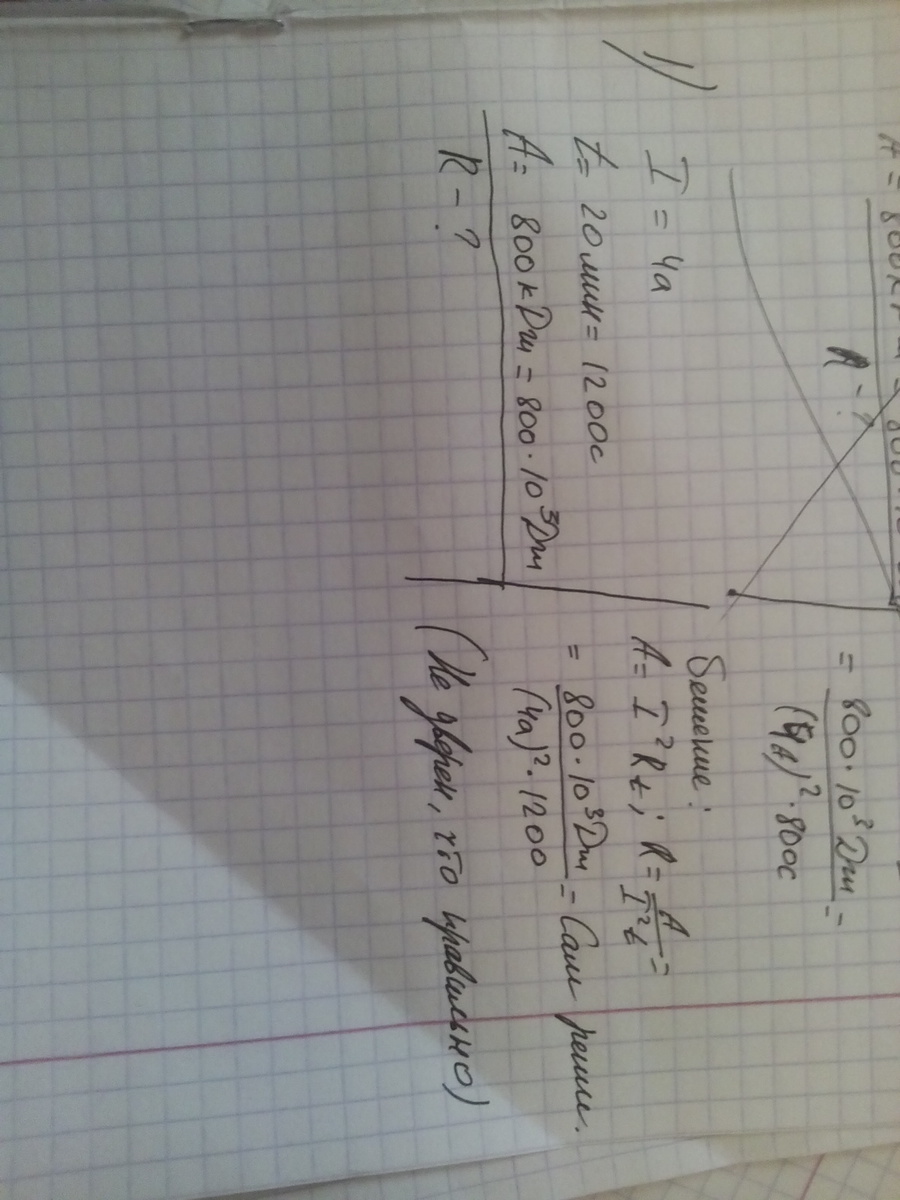 = 800·10³Дж =
(4А)²·800с
R - ?
1)
I = 4а
t = 20мин = 1200с
A = 800кДж = 800·10³Дж
R - ?
Решение:
A = I²Rt; R = A/I²t =
= 800·10³Дж/(4а)²·1200 = Сам реши.
(Не уверен, что правильно)